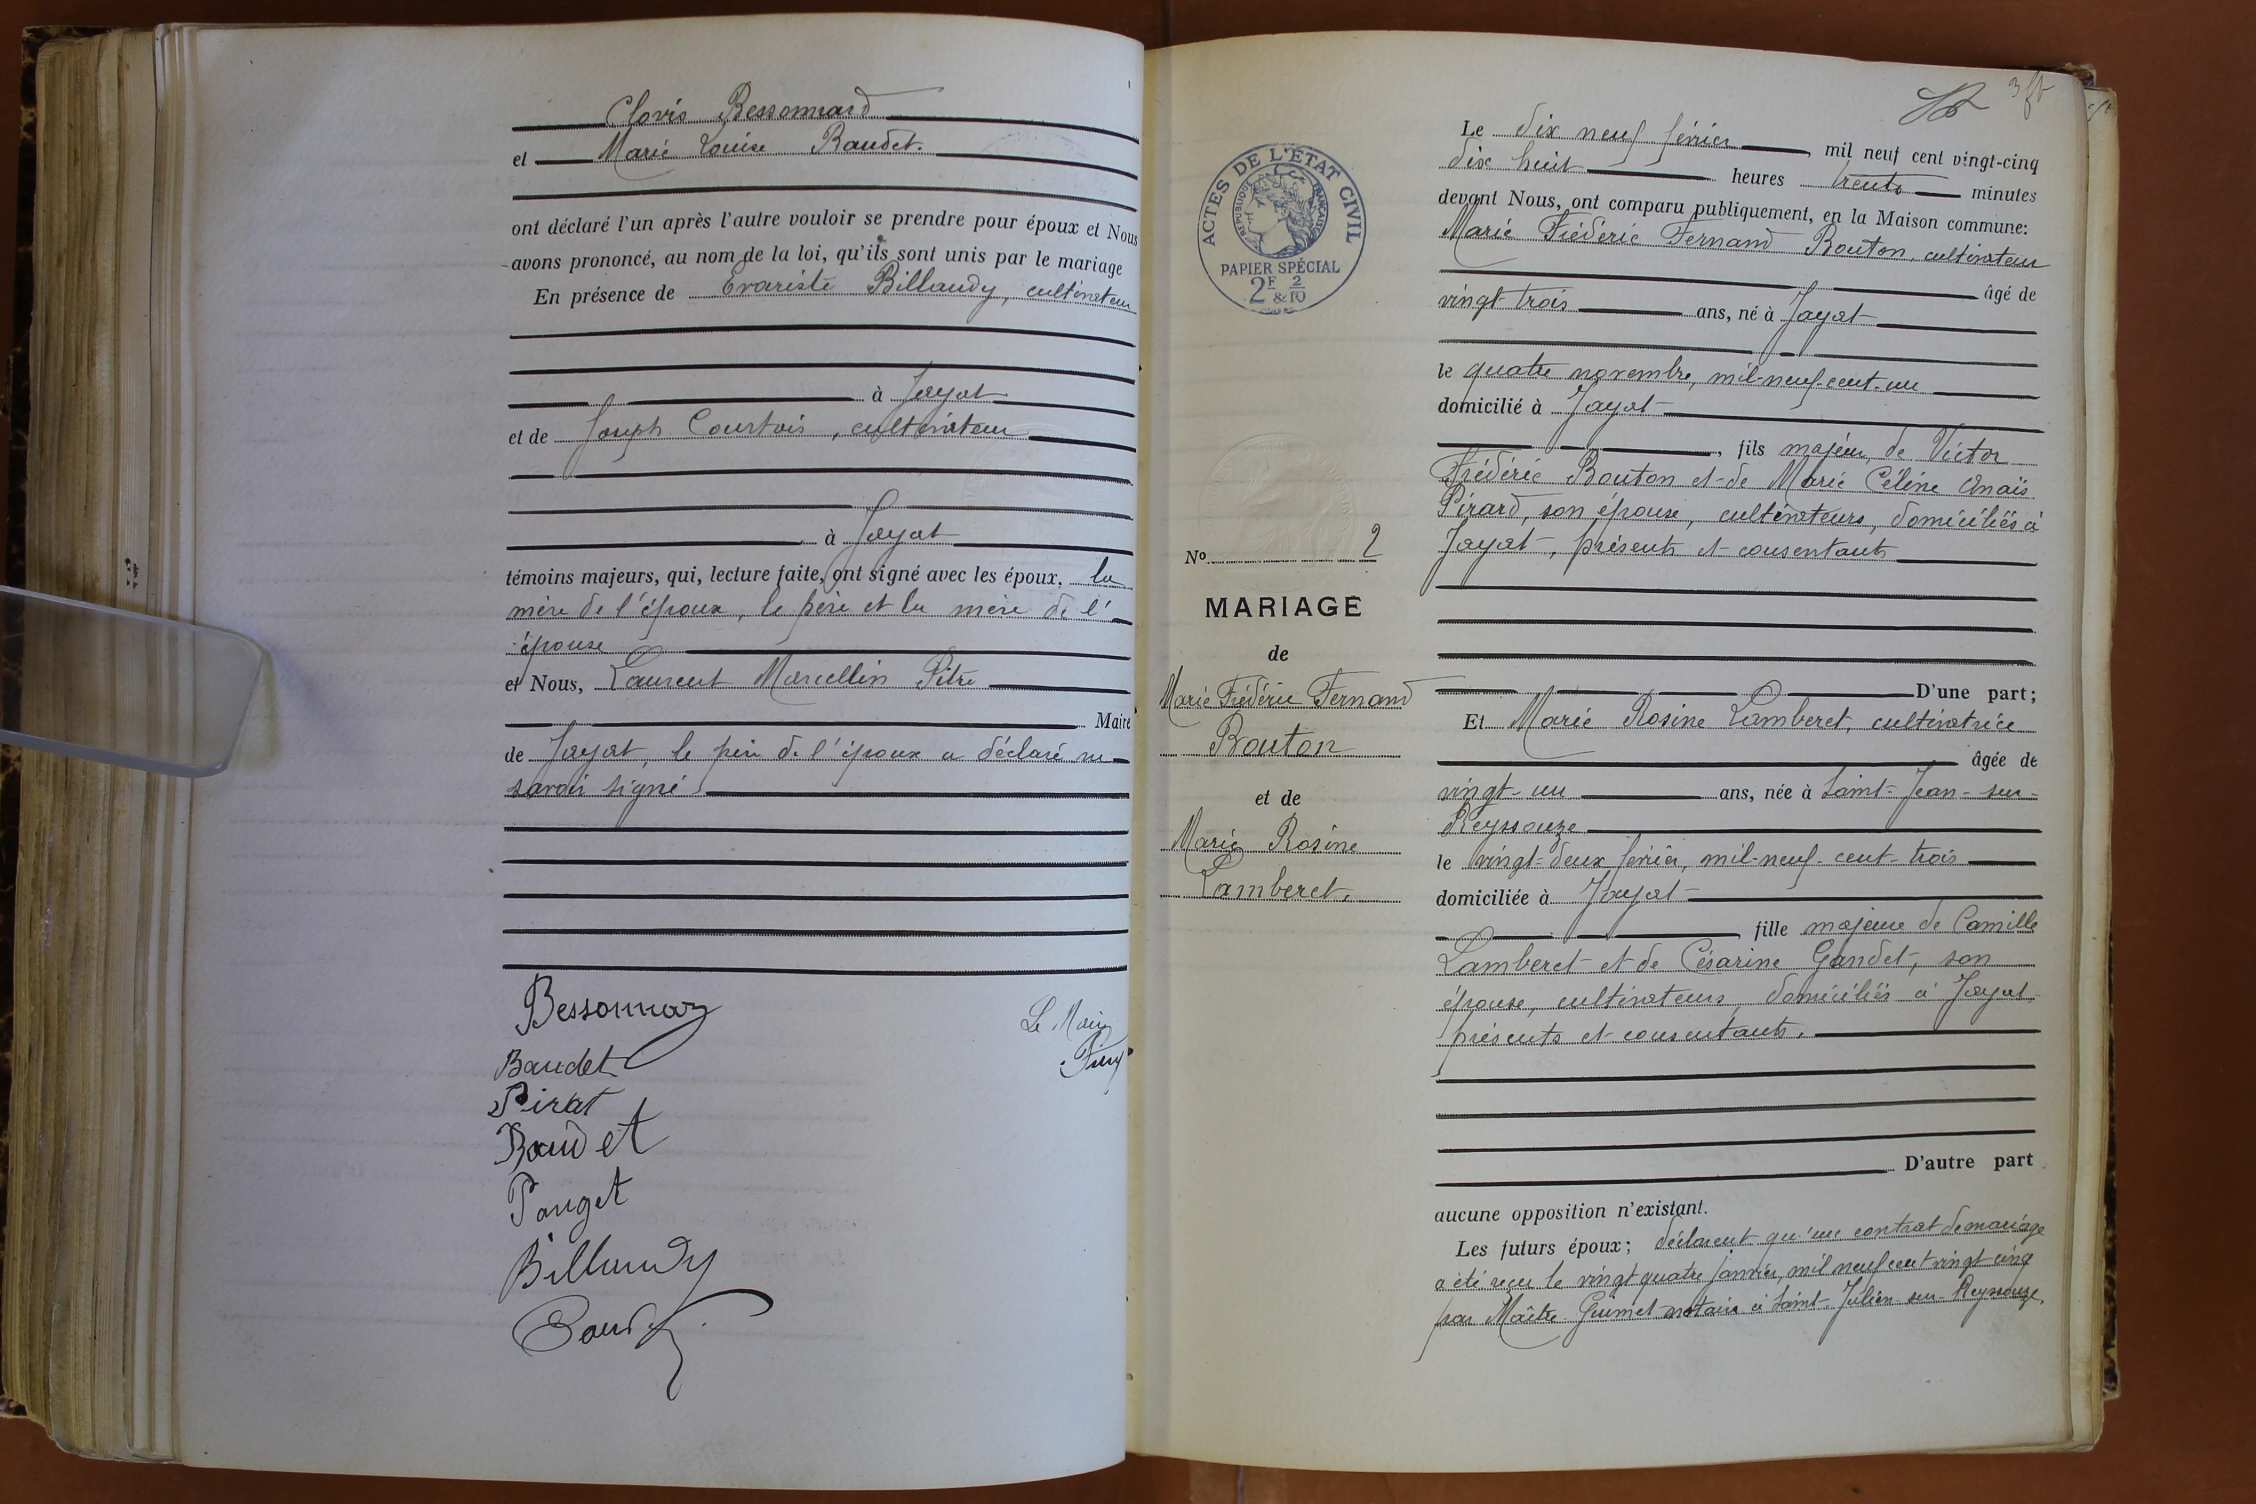 Clovis Bessonnard
et Marie Louise Baudet.
ont déclaré l'un après l'autre vouloir se prendre pour époux et Nous
avons prononcé, au nom de la loi, qu'ils sont unis par le mariage
En présence de Evariste Billaudy, cultivateur
à Jayat
et de Joseph Courtois, cultivateur
à Jayat
témoins majeurs, qui, lecture faite, ont signé avec les époux, la
mère de l'époux, le père et la mère de l'
épouse
et Nous, Laurent Marcellin Pitre
Maire
de Jayat, le père de l'époux a déclaré ne
savoir signé
Bessonnar
Baudet
Pirat
Baudet
Pauget
Billaudy
Le Maire
3 ft
ACTES DE L'ÉTAT CIVIL
RÉPUBLIQUE FRANÇAISE
PAPIER SPÉCIAL
2F & 2/10
No 2
MARIAGE
de
Marie Frédéric Fernand
Bouton
et de
Marie Rosine
Lamberet.
Le dix neuf février mil neuf cent vingt-cinq
dix huit heures trente minutes
devant Nous, ont comparu publiquement, en la Maison commune:
Marie Frédéric Fernand Bouton, cultivateur
âgé de
vingt-trois ans, né à Jayat
le quatre novembre, mil-neuf-cent-un
domicilié à Jayat
, fils majeur de Victor
Frédéric Bouton et de Marie Céline Anaïs
Pirard, son épouse, cultivateurs, domiciliés à
Jayat, présents et consentants
D'une part;
Et Marie Rosine Lamberet, cultivatrice
âgée de
vingt-un ans, née à Saint-Jean-sur-
Reyssouze
le vingt-deux février, mil-neuf-cent-trois
domiciliée à Jayat
fille majeure de Camille
Lamberet et de Césarine Gandet, son
épouse, cultivateurs, domiciliés à Jayat
présents et consentants.
D'autre part
aucune opposition n'existant.
Les futurs époux; déclarent qu'un contrat de mariage
a été reçu le vingt quatre janvier, mil neuf cent vingt cinq
par Maître Guimet notaire à Saint-Julien-sur-Reyssouze,